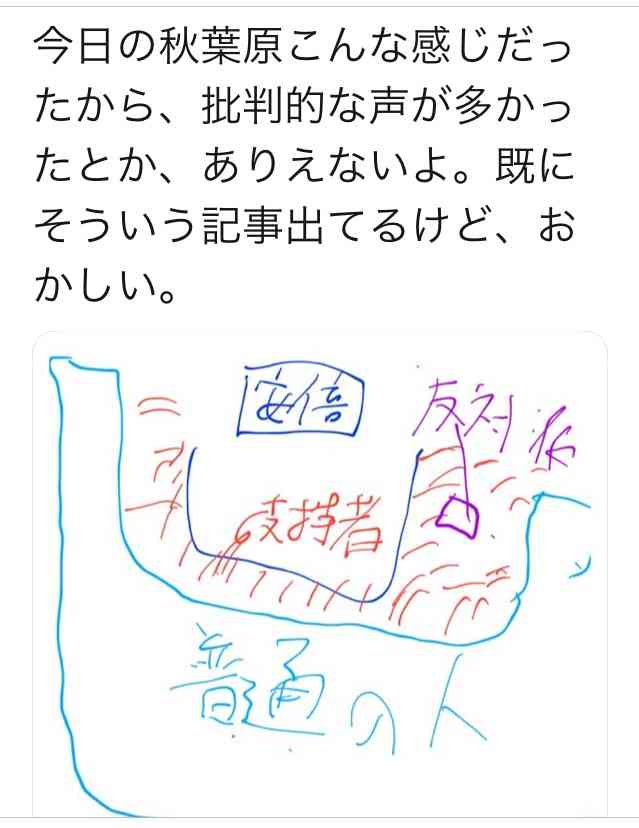 今日の秋葉原こんな感じだっ
たから、批判的な声が多かっ
たとか、ありえないよ。既に
そういう記事出てるけど、お
かしい。
安倍
反対派
支持者
普通の人